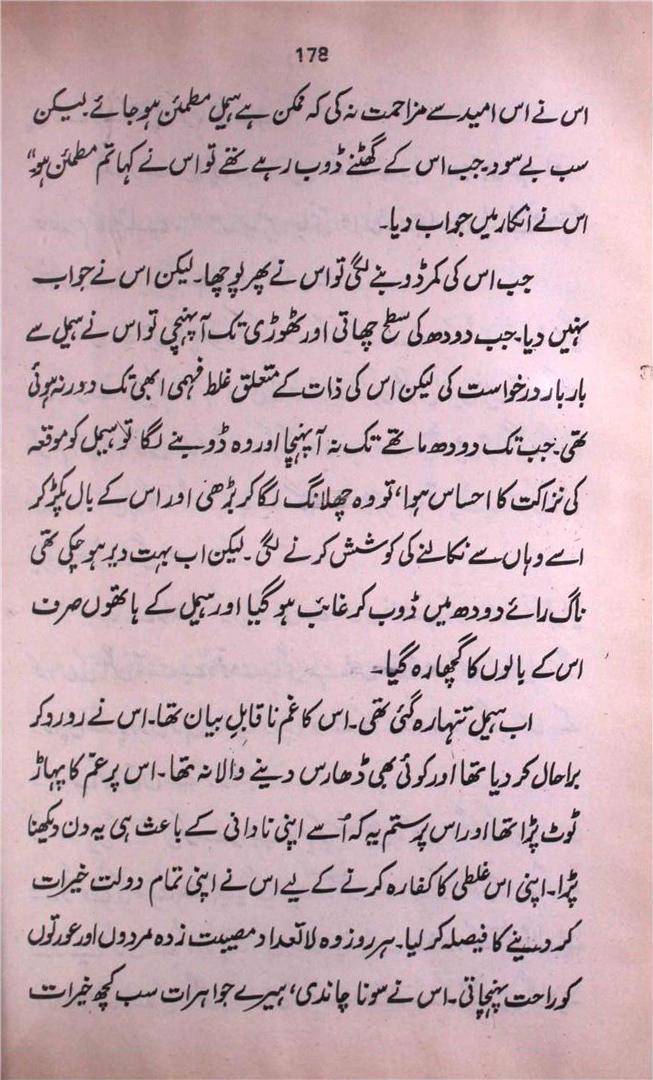 178
اس نے اس امید سے مزاحمت نہ کی کہ ممکن ہے ہیمل مطمئن ہو جائے۔ لیکن
سب بے سود۔ جب اس کے گھٹنے ڈوب رہے تھے تو اس نے کہا تم مطمئن ہو"
اس نے انکار میں جواب دیا۔
جب اس کی کمر ڈوبنے لگی تو اس نے پھر پوچھا۔ لیکن اس نے جواب
نہیں دیا۔ جب دودھ کی سطح چھاتی اور ٹھوڑی تک آ پہنچی تو اس نے ہیمل سے
بار بار درخواست کی لیکن اس کی ذات کے متعلق غلط فہمی ابھی تک دور نہ ہوئی
تھی۔ جب تک دودھ ماتھے تک نہ آ پہنچا اور وہ ڈوبنے لگا تو ہیمل کو موقعہ
کی نزاکت کا احساس ہوا، تو وہ چھلانگ لگا کر بڑھی اور اس کے بال پکڑ کر
اسے وہاں سے نکالنے کی کوشش کرنے لگی۔ لیکن اب بہت دیر ہو چکی تھی
ناگ رائے دودھ میں ڈوب کر غائب ہو گیا اور ہیمل کے ہاتھوں صرف
اس کے بالوں کا گچھا رہ گیا۔
اب ہیمل تنہا رہ گئی تھی۔ اس کا غم ناقابل بیان تھا۔ اس نے رو رو کر
برا حال کر دیا تھا اور کوئی بھی ڈھارس دینے والا نہ تھا۔ اس پر غم کا پہاڑ
ٹوٹ پڑا تھا اور اس پر ستم یہ کہ اُسے اپنی نادانی کے باعث ہی یہ دن دیکھنا
پڑا۔ اپنی اس غلطی کا کفارہ کرنے کے لیے اس نے اپنی تمام دولت خیرات
کر دینے کا فیصلہ کر لیا۔ ہر روز وہ لاتعداد مصیبت زدہ مردوں اور عورتوں
کو راحت پہنچاتی۔ اس نے سونا چاندی، ہیرے جواہرات سب کچھ خیرات